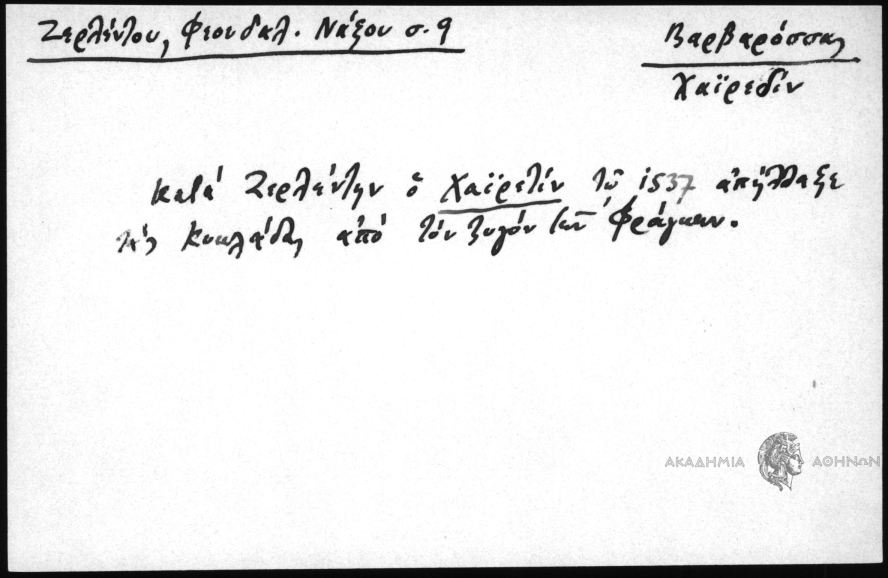 Ζερλέντου, Φεουδαλ. Νάξου σ. 9
Βαρβαρόσσας
Χαϊρεδίν
Κατά Ζερλέντην ὁ Χαϊρετίν τῷ 1537 ἀπήλλαξε
τάς Κυκλάδας ἀπό τόν ζυγόν τῶν Φράγκων.
ΑΚΑΔΗΜΙΑ ΑΘΗΝΩΝ